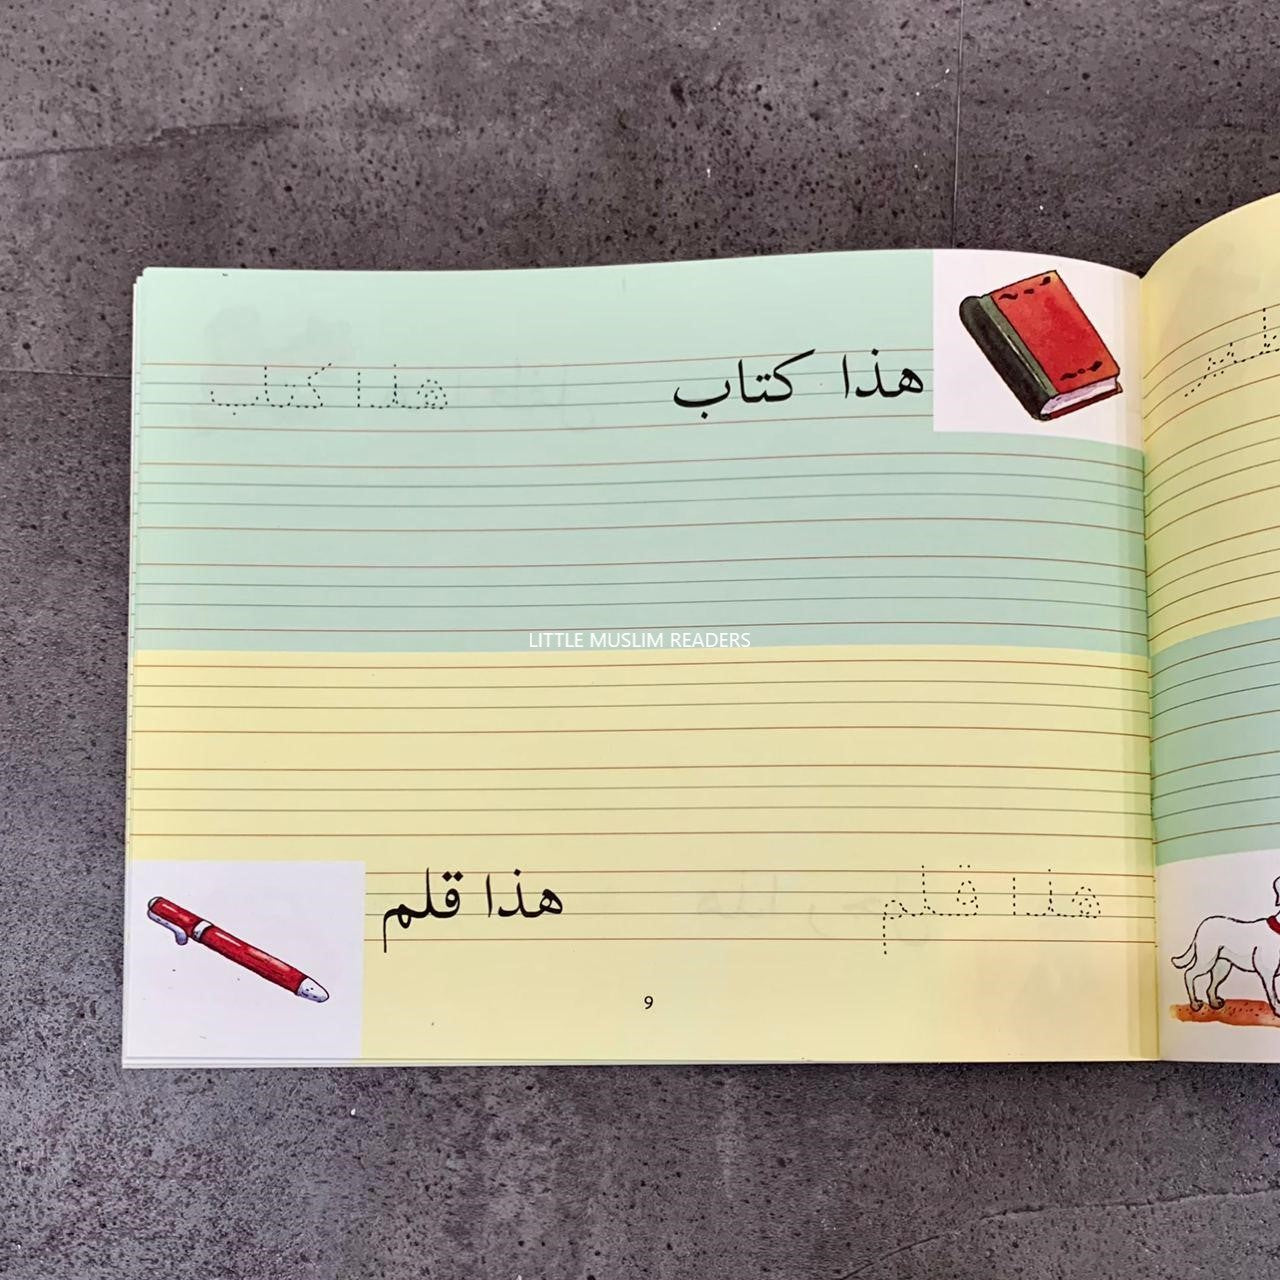 هذا كتاب هذا كتاب
LITTLE MUSLIM READERS
هذا قلم هذا قلم
9